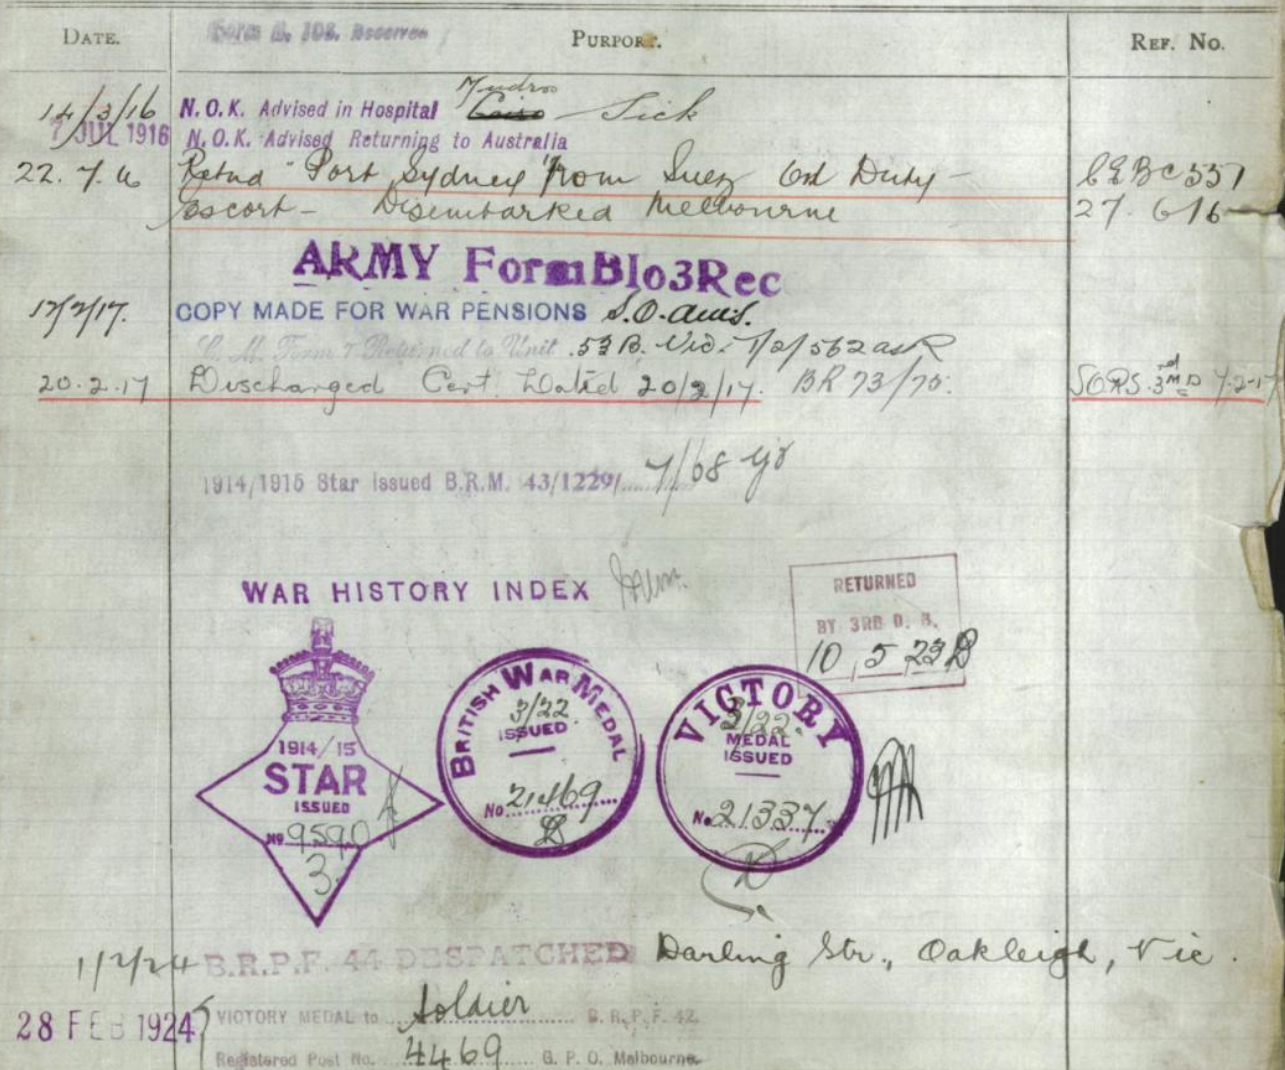 DATE. Form B. 103. Received PURPORT. REF. No.
Mudros
14/3/16 N.O.K. Advised in Hospital Cairo Sick
7 JUL 1916 N.O.K. Advised Returning to Australia
22.7.16 Retnd "Port Sydney" from Suez on Duty - 557
Escort - Disembarked Melbourne 27. 616
ARMY FormB103Rec
COPY MADE FOR WAR PENSIONS
Form Returned to Unit 53 B. Vic.
20.2.17 Discharged Cert Dated 20/2/17. BR 73/75. 3rd M D 7.2.17
1914/1915 Star issued B.R.M. 43/1229/ 7/68
WAR HISTORY INDEX
RETURNED
BY 3RD D. B.
10 5 23
1914/15
STAR
ISSUED
No 9590
3.
BRITISH WAR MEDAL
3/22
ISSUED
No 21469
VICTORY
3/22
MEDAL
ISSUED
No 21337
1/2/24 B.R.P.F. 44 DESPATCHED Darling Str., Oakleigh, Vic.
28 FEB 1924 VICTORY MEDAL to Soldier B.R.P.F. 42.
Registered Post No. 4469 G. P. O. Melbourne.